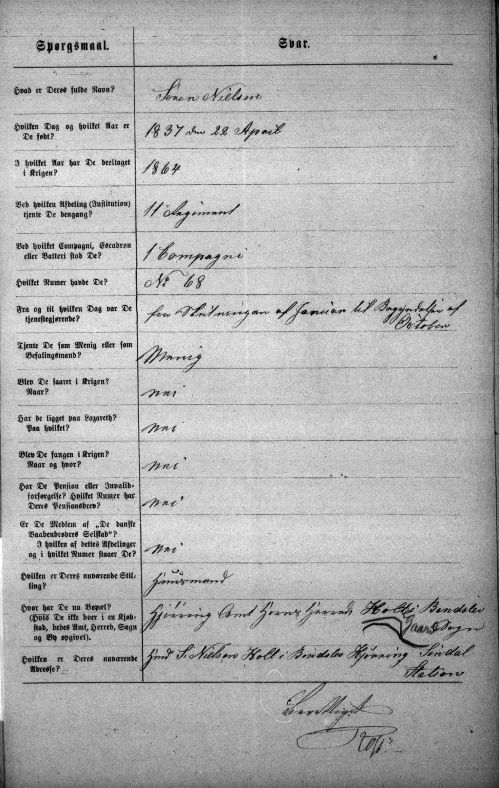 Spørgsmaal.
Svar.
Hvad er Deres fulde Navn?
Søren Nielsen
Hvilken Dag og hvilket Aar er
De født?
1837 den 22 April
I hvilket Aar har De deeltaget
i Krigen?
1864
Ved hvilken Afdeling (Institution)
tjente De dengang?
11te Regiment
Ved hvilket Compagni, Escadron
eller Batteri stod De?
1 Compagni
Hvilket Numer havde De?
No 68
Fra og til hvilken Dag var De
tjenestegjørende?
fra Slutningen af Januar til Begyndelsen af
October
Tjente De som Menig eller som
Befalingsmand?
Menig
Blev De saaret i Krigen?
Naar?
nei
Har de ligget paa Lazareth?
Paa hvilket?
nei
Blev De fangen i Krigen?
Naar og hvor?
nei
Har De Pension eller Invalid-
forsørgelse? Hvilket Numer har
Deres Pensionsbrev?
nei
Er De Medlem af „De danske
Vaabenbrødres Selskab“?
I hvilken af dettes Afdelinger
og i hvilket Numer staaer De?
Nei
Hvilken er Deres nuværende Stil-
ling?
Huusmand
Hvor har De nu Bopæl?
(Hvis De ikke boer i en Kjøb-
stad, bedes Amt, Herred, Sogn
og By opgivet).
Hjörring Amt Horns Herred Holt i Bendslev
Sogn
Hvilken er Deres nuværende
Adresse?
Hmd S. Nielsen Holt i Bendslev Hjörring Sindal
Station